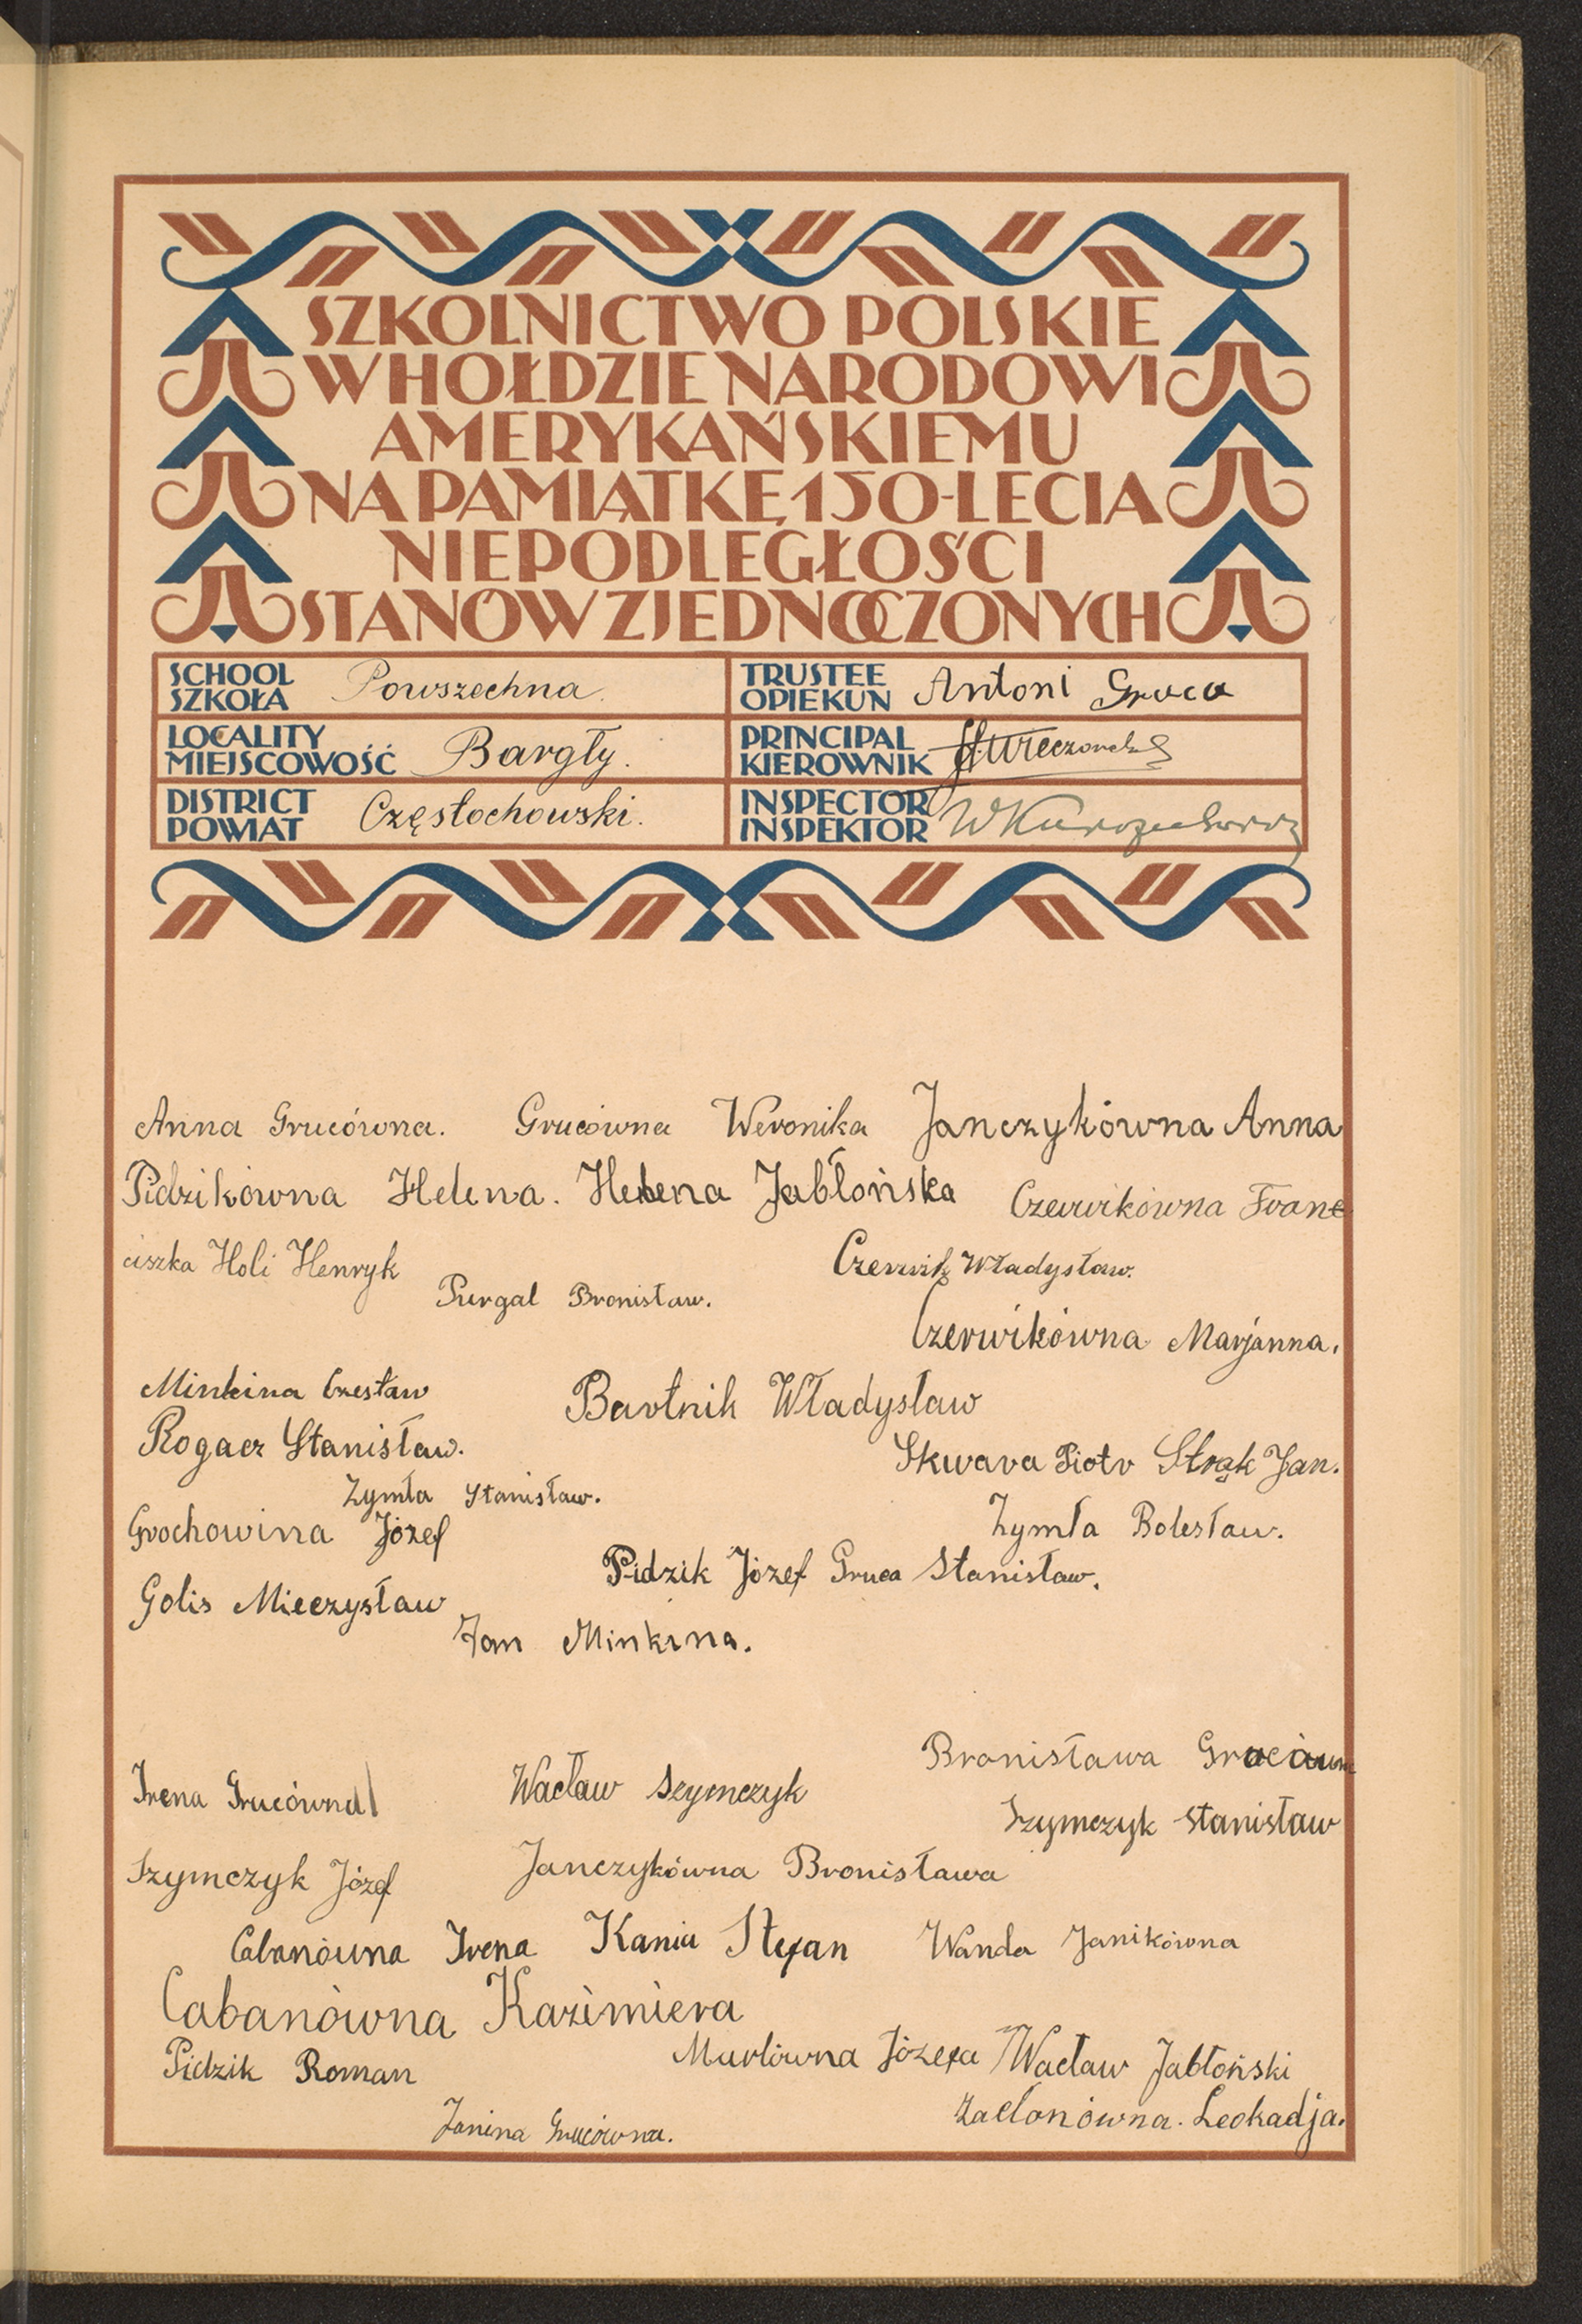 SZKOLNICTWO POLSKIE
W HOŁDZIE NARODOWI
AMERYKAŃSKIEMU
NA PAMIĄTKĘ 150-LECIA
NIEPODLEGŁOŚCI
STANÓW ZJEDNOCZONYCH
SCHOOL
SZKOŁA Powszechna.
TRUSTEE
OPIEKUN Antoni Gruca
LOCALITY
MIEJSCOWOŚĆ Bargły.
PRINCIPAL
KIEROWNIK
DISTRICT
POWIAT Częstochowski.
INSPECTOR
INSPEKTOR
Anna Grucówna. Grucówna Weronika Janczykówna Anna
Pidzikówna Helena. Helena Jabłońska Czerwikówna Franc
iszka Holi Henryk Czerwik Władysław.
Purgal Bronisław.
Czerwikówna Marjanna.
Minkina Czesław Bartnik Władysław
Rogacz Stanisław. Skwara Piotr Strąk Jan.
Zymła Stanisław.
Grochowina Józef Zymła Bolesław.
Pidzik Józef Gruca Stanisław.
Golis Mieczysław
Jan Minkina.
Bronisława
Irena Grucówna Wacław Szymczyk
Szymczyk Stanisław
Szymczyk Józef Janczykówna Bronisława
Cabanówna Irena Kania Stefan Wanda Janikówna
Cabanówna Kazimiera
Pidzik Roman Józefa Wacław Jabłoński
Leokadja.
Janina Grucówna.